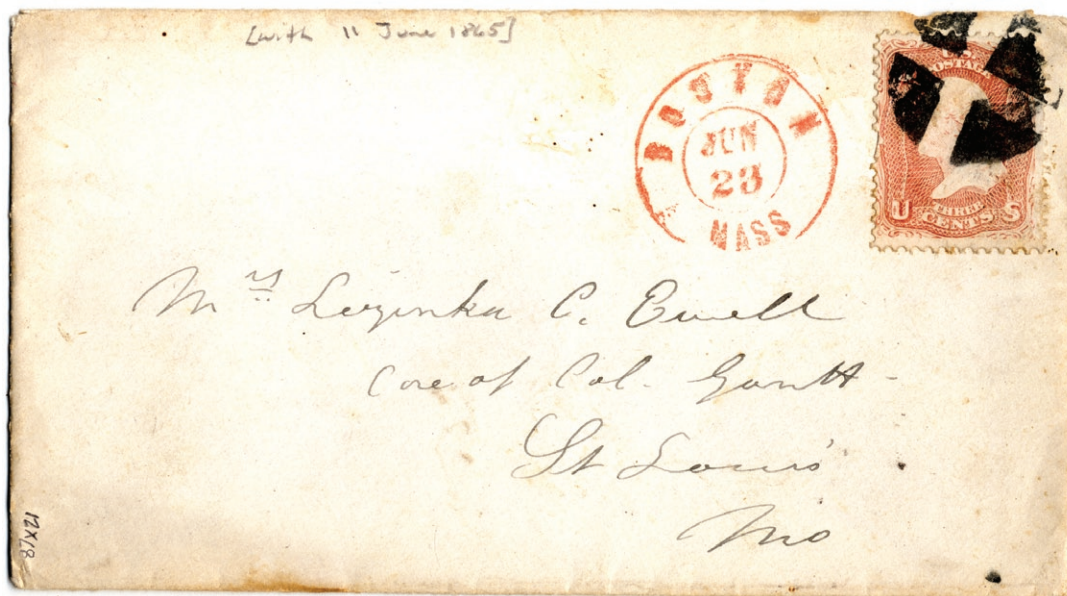 [with 11 June 1865]
BOSTON
JUN
23
MASS
U.S.
POSTAGE
THREE
U CENTS S
Mrs Lizinka C. Ewell
Care of Col. Gantt
St Louis
Mo
87X21